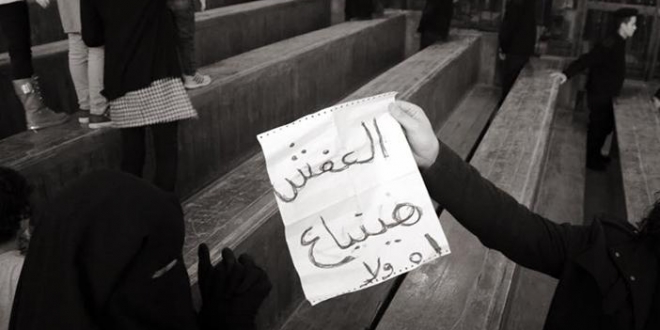 العفش
هيتباع
اه ولا